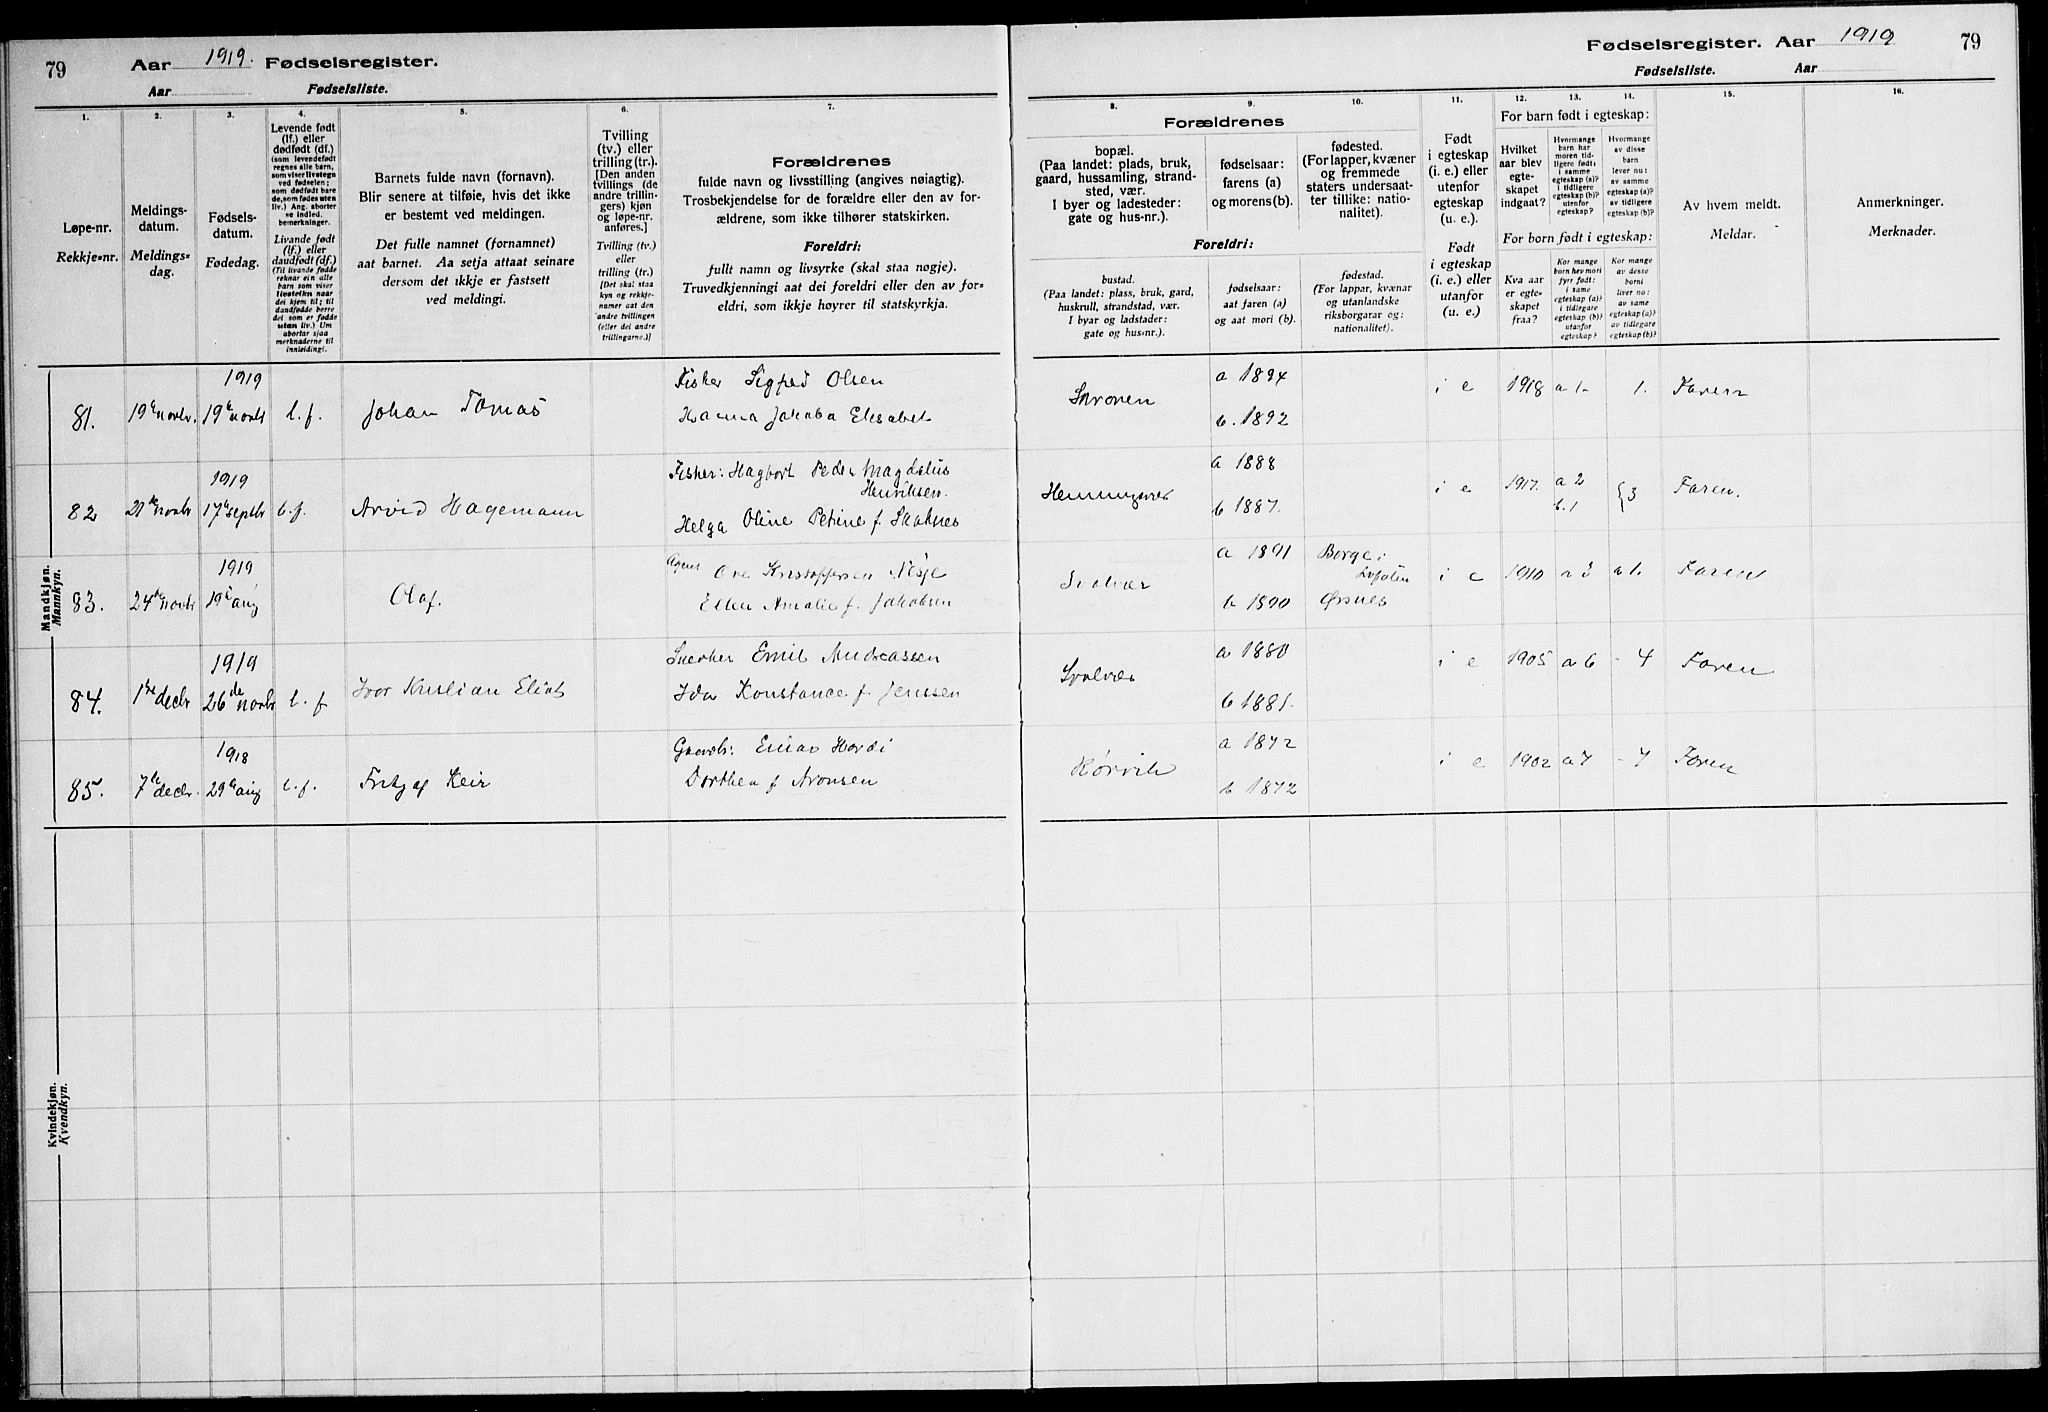 79
Aar 1919. Fødselsregister.
Aar Fødselsliste.
1.
2.
3.
4.
5.
6.
7.
Løpe-nr.
Rekkje=nr.
Meldings-
datum.
Meldings=
dag.
Fødsels-
datum.
Fødedag.
Levende født
(lf.) eller
dødfødt (df.)
(som levendefødt
regnes alle barn,
som viser livstegn
ved fødselen;
som dødfødt bare
de, som fødes uten
liv.) Ang. aborter
se indled.
bemerkninger.
Livande født
(lf.) eller
daudfødt (df.)
(Til livande fødde
reknar ein alle
barn som viser
livsteikn naar
dei kjem til; til
daudfødde berre
dei som er fødde
utan liv.) Um
abortar sjaa
merknaderne til
innleidingi.
Barnets fulde navn (fornavn).
Blir senere at tilføie, hvis det ikke
er bestemt ved meldingen.
Det fulle namnet (fornamnet)
aat barnet. Aa setja attaat seinare
dersom det ikkje er fastsett
ved meldingi.
Tvilling
(tv.) eller
trilling (tr.).
[Den anden
tvillings (de
andre trillin-
gers) kjøn
og løpe-nr.
anføres.]
Tvilling (tv.)
eller
trilling (tr.)
[Det skal staa
kyn og rekkje-
numer aat den
andre tvillingen
(eller dei andre
trillingarne.)]
Forældrenes
fulde navn og livsstilling (angives nøiagtig).
Trosbekjendelse for de forældre eller den av for-
ældrene, som ikke tilhører statskirken.
Foreldri:
fullt namn og livsyrke (skal staa nøgje).
Truvedkjenningi aat dei foreldri eller den av for=
eldri, som ikkje høyrer til statskyrkja.
Mandkjøn.
Mannkyn.
81.
19de novbr.
1919
19de novbr
l. f.
Johan Tomas
Fisker Sigfred Olsen
Hanna Jakoba Elisabet
82
21de novbr
1919
17de septbr
l. f.
Arvid Hagemann
Fisker: Hagbart Peder Magdelius
Henriksen.
Helga Oline Petrine f.
83.
24de novbr
1919
19de aug
Olaf.
Agent Ove Kristoffersen
Ellen Amalie f. Jakobsen
84.
1ste decbr
1919
26de novbr
l. f
Ivor Kristian Eliot
Snekker Emil Andreassen
Ida Konstance f. Jenssen
85.
7de decbr.
1918
29de aug
l. f.
Fritjof Keir
Gaardb: Einar Hardi
Dorthea f Aronsen
Kvindekjøn.
Kvendkyn.
Fødselsregister. Aar 1919
79
Fødselsliste. Aar
8.
9.
10.
11.
12.
13.
14.
15.
16.
Forældrenes
bopæl.
(Paa landet: plads, bruk,
gaard, hussamling, strand-
sted, vær.
I byer og ladesteder:
gate og hus-nr.).
fødselsaar:
farens (a)
og morens (b).
fødested.
(For lapper, kvæner
og fremmede
staters undersaat-
ter tillike: natio-
nalitet).
Foreldri:
bustad.
(Paa landet: plass, bruk, gard,
huskrull, strandstad, vær.
I byar og ladstader:
gate og hus=nr.).
fødselsaar:
aat faren (a)
og aat mori (b).
fødestad.
(For lappar, kvænar
og utanlandske
riksborgarar og:
nationalitet).
Født
i egteskap
(i. e.) eller
utenfor
egteskap
(u. e.).
Født
i egteskap
(i. e.) eller
utanfor
(u. e.)
For barn født i egteskap:
Hvilket
aar blev
egte-
skapet
indgaat?
Hvormange
barn har
moren tid-
ligere født:
i samme
egteskap (a)?
i tidligere
egteskap (b)?
utenfor
egteskap?
Hvormange
av disse
barn
lever nu:
av samme
egteskap (a)?
av tidligere
egteskap (b)?
For born født i egteskap:
Kva aar
er egte-
skapet
fraa?
Kor mange
born hev mori
fyrr født:
i same
egteskap (a)?
i tidlegare
egteskap (b)?
utanfor
egteskap?
Kor mange
av desse
borni
liver no:
av same
egteskap (a)?
av tidlegare
egteskap (b)?
Av hvem meldt.
Meldar.
Anmerkninger.
Merknader.
Skroven
a 1894
b. 1892
i e
1918
a 1.
1.
Faren
Henningsvær
a 1888
b 1887.
i e
1917.
a 2
b. 1
{3
Faren.
Svolvær
a 1891
b 1890
Borge i
Lofoten
Ørsnes
i e
1910
a 3
a 1.
Faren
Svolvær
a 1880
b 1881.
i e
1905
a 6
- 4
Faren
Rørvik
a 1872
b 1872
i e
1902
a 7
- 7
Faren